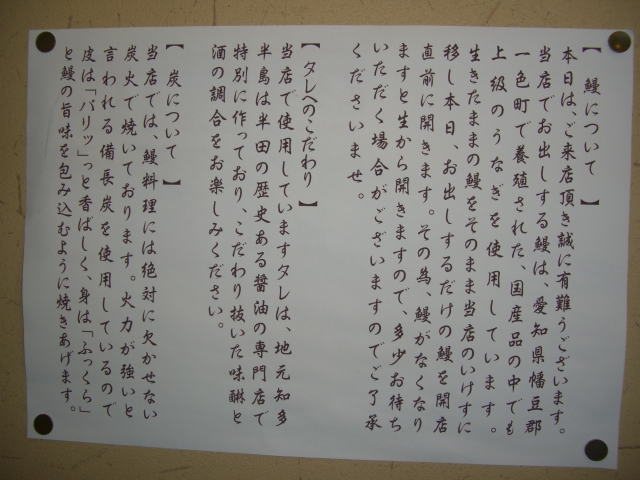 【 鰻について 】
本日は、ご来店頂き誠に有難うございます。
当店でお出しする鰻は、愛知県幡豆郡
一色町で養殖された、国産品の中でも
上級のうなぎを使用しています。
生きたままの鰻をそのまま当店のいけすに
移し本日、お出しするだけの鰻を開店
直前に開きます。その為、鰻がなくなり
ますと生から開きますので、多少お待ち
いただく場合がございますのでご了承
くださいませ。
【 タレへのこだわり 】
当店で使用していますタレは、地元知多
半島は半田の歴史ある醤油の専門店で
特別に作っており、こだわり抜いた味醂と
酒の調合をお楽しみください。
【 炭について 】
当店では、鰻料理には絶対に欠かせない
炭火で焼いております。火力が強いと
言われる備長炭を使用しているので
皮は「パリッ」っと香ばしく、身は「ふっくら」
と鰻の旨味を包み込むように焼きあげます。